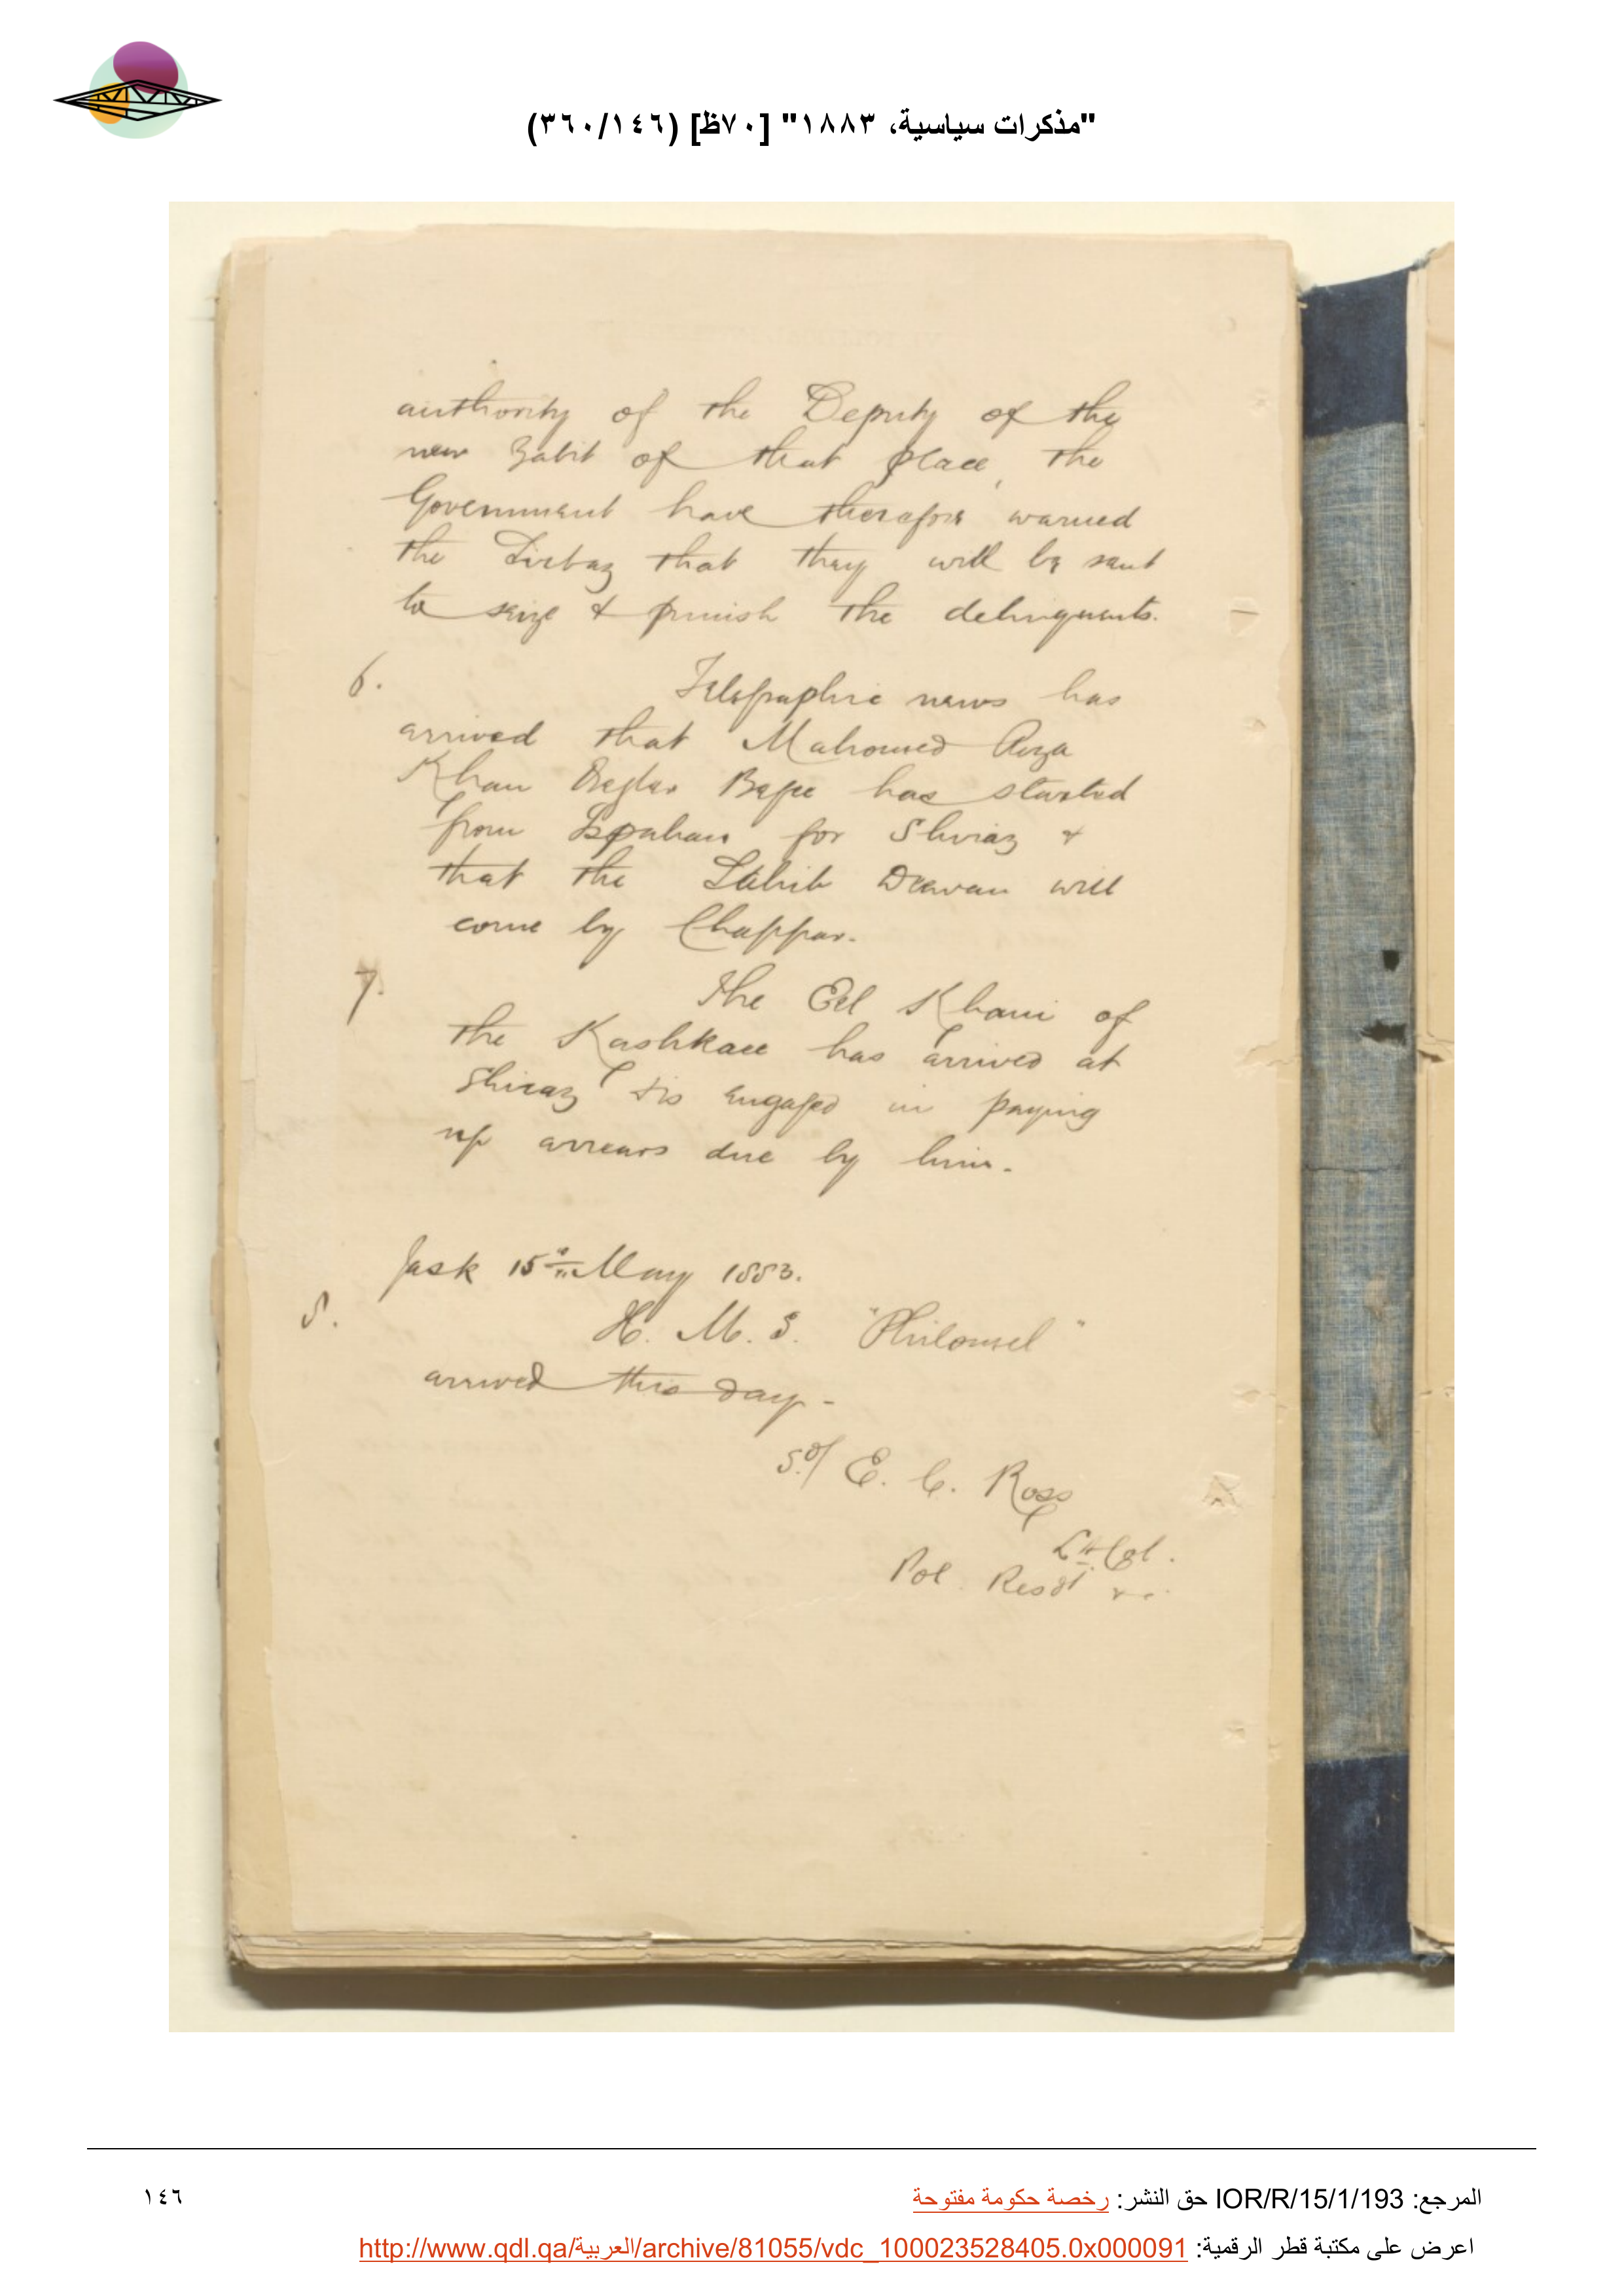 "مذكرات سياسية، ١٨٨٣" [٧٠ظ] (٣٦٠/١٤٦)
authority of the Deputy of the
new Zabit of that place, the
Government have therefore warned
the Sirbaz that they will be sent
to seize & punish the delinquents.
6. Telegraphic news has
arrived that Mahomed Riza
Khan Begler Begee has started
from Ispahan for Shiraz &
that the Sahib Deewan will
come by Chappar.
7. The Eel Khani of
the Kashkaee has arrived at
Shiraz & is engaged in paying
up arrears due by him.
Jask 15th May 1883.
8. H. M. S. "Philomel"
arrived this day.
Sd/ E. C. Ross
Lt. Col.
Pol. Resdt &c.
المرجع: IOR/R/15/1/193 حق النشر: رخصة حكومة مفتوحة
١٤٦
اعرض على مكتبة قطر الرقمية: http://www.qdl.qa/العربية/archive/81055/vdc_100023528405.0x000091